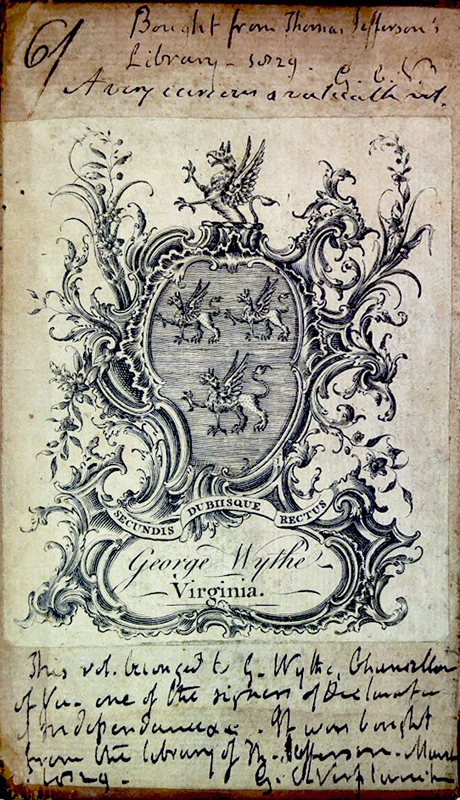 61
Bought from Thomas Jefferson's
Library - 1829.
G. C. V.
A very curious & valuable vol.
SECUNDIS DUBIISQUE RECTUS
George Wythe
Virginia.
This vol. belonged to G. Wythe, Chancellor
of Va - one of the signers of Declarat
of Independance &c. It was bought
from the library of Th. Jefferson - March
1829 - G. C. Verplanck